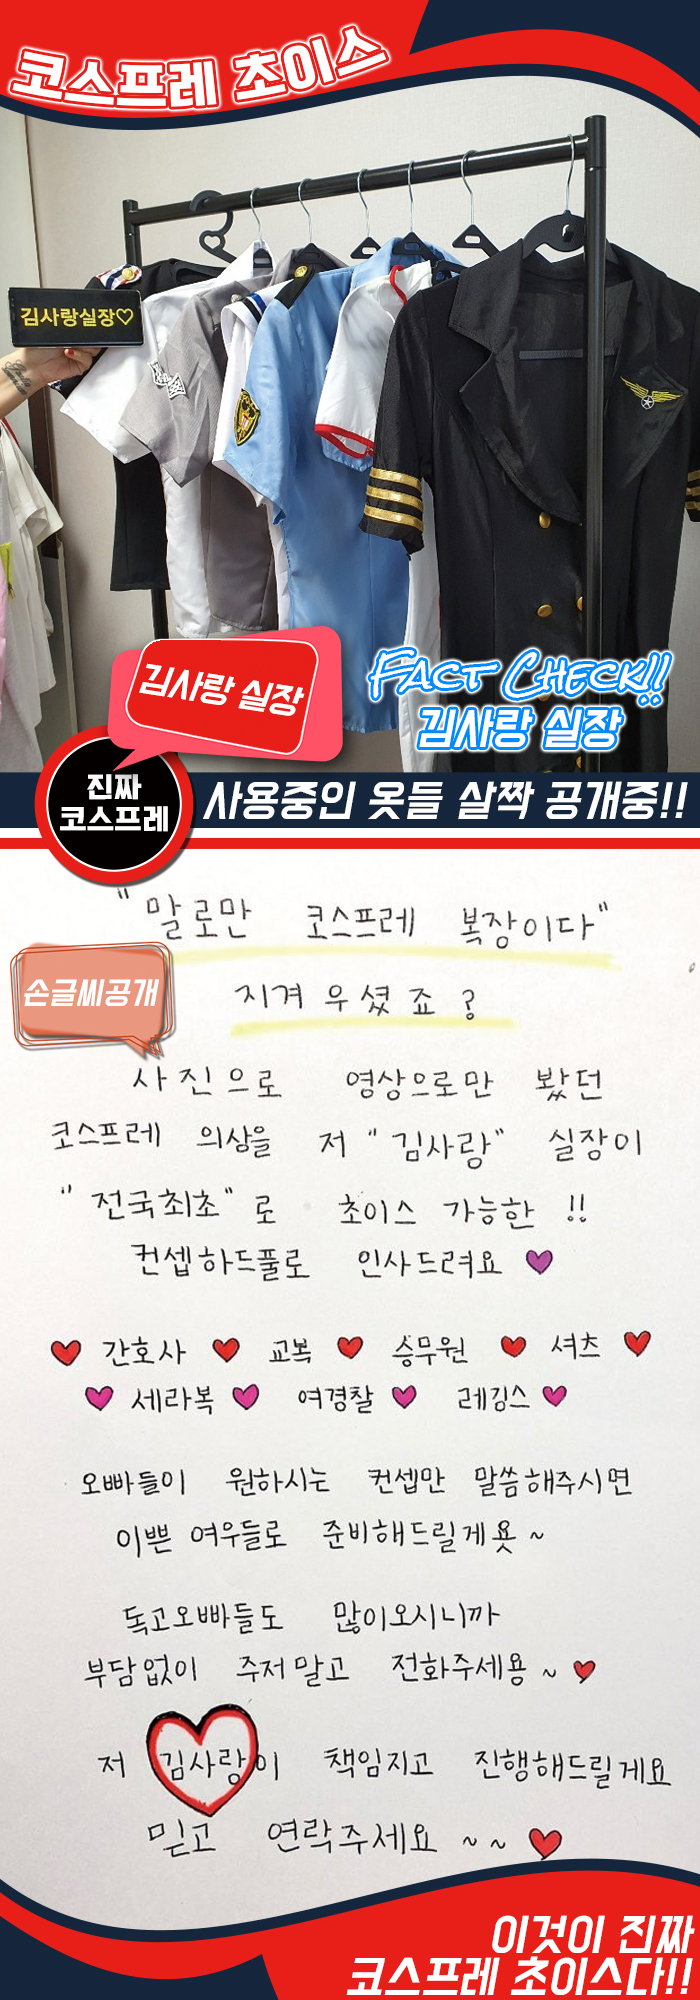 코스프레 초이스
김사랑실장♡
김사랑 실장
FACT CHECK!!
김사랑 실장
진짜
코스프레
사용중인 옷들 살짝 공개중!!
"말로만 코스프레 복장이다"
손글씨공개
지겨우셨죠?
사진으로 영상으로만 봤던
코스프레 의상을 저 "김사랑" 실장이
"전국최초"로 초이스 가능한!!
컨셉하드풀로 인사드려요 ♥
♥ 간호사 ♥ 교복 ♥ 승무원 ♥ 셔츠 ♥
♥ 세라복 ♥ 여경찰 ♥ 레깅스 ♥
오빠들이 원하시는 컨셉만 말씀해주시면
이쁜 여우들로 준비해드릴게욧~
독고오빠들도 많이오시니까
부담없이 주저말고 전화주세용~ ♥
저 김사랑이 책임지고 진행해드릴게요
믿고 연락주세요~~ ♥
이것이 진짜
코스프레 초이스다!!